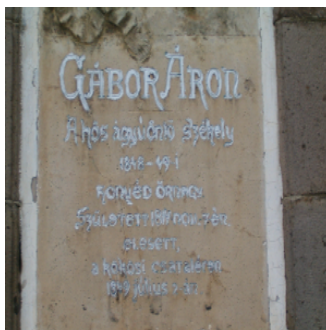 GÁBOR ÁRON
A hős ágyúöntő székely
1848-49 i
HONVÉD ŐRNAGY
Született
elesett
a kökösi csatatéren
1849 július 2 án